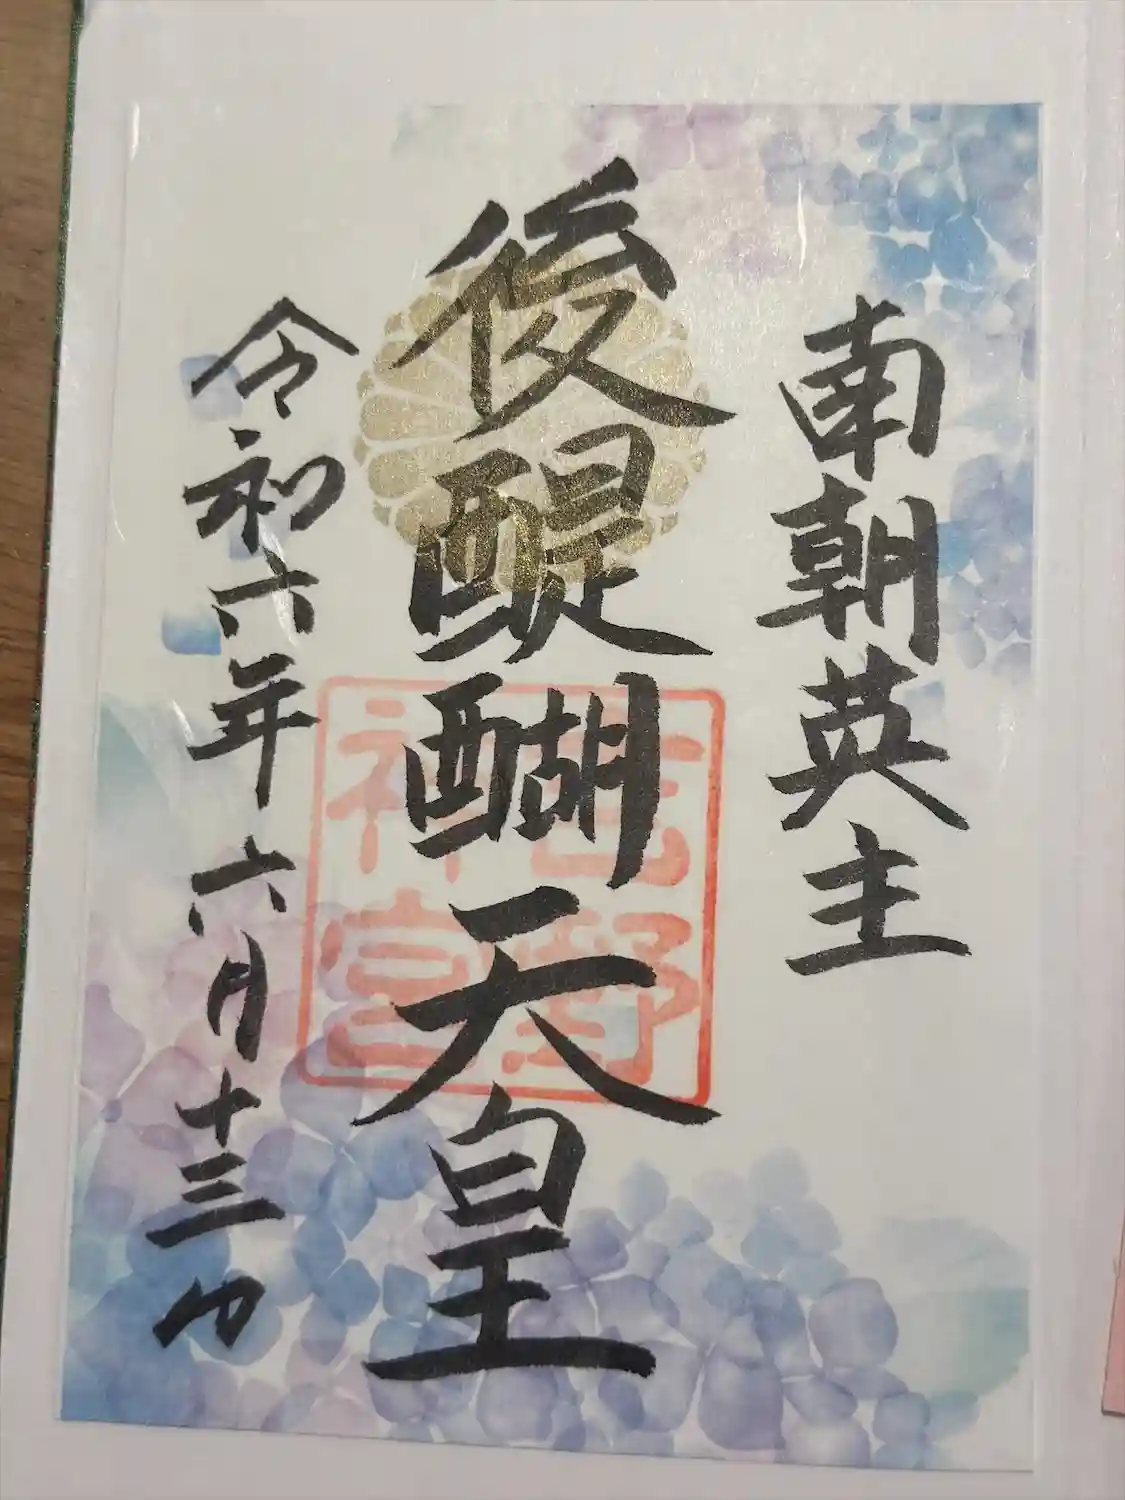 南朝英主
後醍醐天皇
吉野神宮
令和六年六月十三日